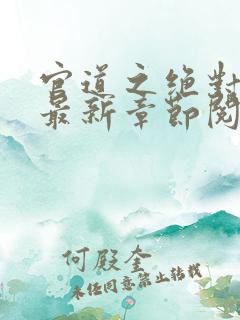 官道之绝对
最新章节阅
何殿奎
未经同意禁止转载